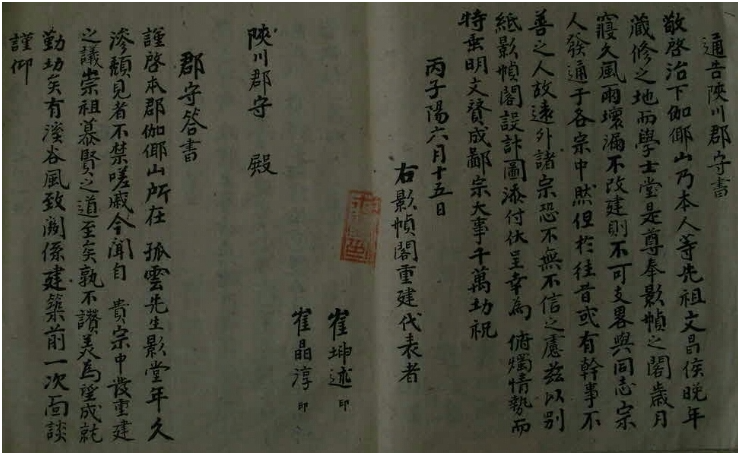 通告陜川郡守書
敬啓治下伽倻山乃本人等先祖文昌侯晩年
藏修之地而學士堂是尊奉影幀之閣歲月
寢久風雨壞漏不改建則不可支畧與同志宗
人發通于各宗中然但於往昔或有幹事不
善之人故遠外諸宗恐不無不信之慮玆以別
紙影幀閣設計圖添付伏呈幸爲 俯燭情勢而
特垂明文贊成鄙宗大事千萬功祝
丙子陽六月十五日
右影幀閣重建代表者
崔坤述 印
崔晶淳 印
陜川郡守 殿
郡守答書
謹啓本郡伽倻山所在 孤雲先生影堂年久
滲頹見者不禁嗟戚今聞自 貴宗中發重建
之議崇祖慕賢之道至矣孰不讚美爲望成就
勤功矣有溪谷風致關係建築前一次面談
謹仰